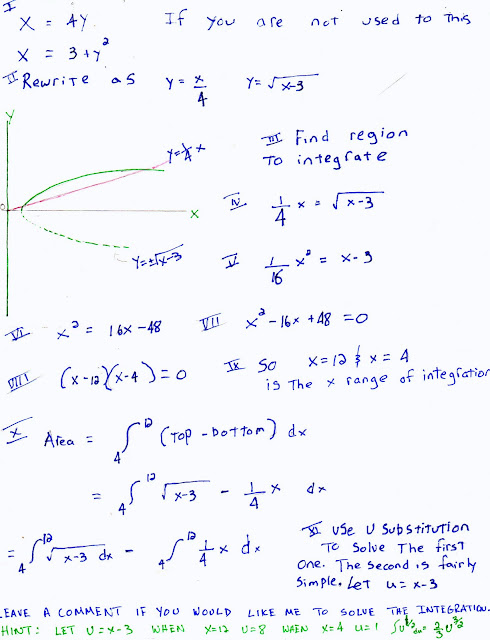 I
x = 4y If you are not used to this
x = 3 + y²
II Rewrite as y = x/4 y = √x-3
y
III Find region
To integrate
y = ¼x
x
IV 1/4 x = √x-3
y = ±√x-3
V 1/16 x² = x-3
VI x² = 16x - 48 VII x² - 16x + 48 = 0
VIII (x-12)(x-4) = 0 IX So x = 12 & x = 4
is The x range of integration
X Area = ₄∫¹² (Top - bottom) dx
= ₄∫¹² √x-3 - 1/4 x dx
= ₄∫¹² √x-3 dx - ₄∫¹² 1/4 x dx
XI Use U Substitution
To Solve The first
One. The Second is fairly
Simple. Let u = x-3
LEAVE A COMMENT IF YOU WOULD LIKE ME TO SOLVE THE INTEGRATION.
HINT: LET U = X-3 WHEN X=12 U=8 WHEN X=4 U=1 ∫U^½ du = 2/3 U^3/2